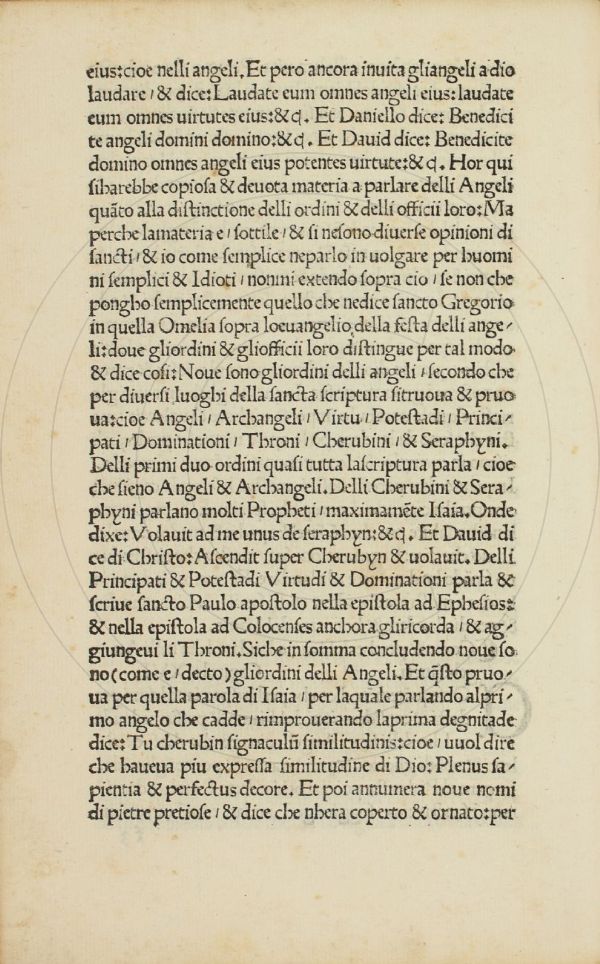 eius:cioe nelli angeli. Et pero ancora inuita gliangeli a dio
laudare / & dice: Laudate eum omnes angeli eius: laudate
eum omnes uirtutes eius:&cꝭ. Et Daniello dice: Benedici
te angeli domini domino:&cꝭ. Et Dauid dice: Benedicite
domino omnes angeli eius potentes uirtute:&cꝭ. Hor qui
siharebbe copiosa & deuota materia a parlare delli Angeli
quāto alla distinctione delli ordini & delli officii loro: Ma
perche lamateria e / sottile / & si nesono diuerse opinioni di
sancti / & io come semplice neparlo in uolgare per huomi
ni semplici & Idioti / nonmi extendo sopra cio / se non che
pongho semplicemente quello che nedice sancto Gregorio
in quella Omelia sopra loeuangelio della festa delli ange⸗
li: doue gliordini & gliofficii loro distingue per tal modo
& dice cosi: Noue sono gliordini delli angeli / secondo che
per diuersi luoghi della sancta scriptura sitruoua & pruo
ua: cioe Angeli / Archangeli / Virtu / Potestadi / Princi⸗
pati / Dominationi / Throni / Cherubini / & Seraphyni.
Delli primi duo ordini quasi tutta lascriptura parla / cioe
che sieno Angeli & Archangeli. Delli Cherubini & Sera⸗
phyni parlano molti Propheti / maximamēte Isaia. Onde
dixe: Volauit ad me unus de seraphyn:&cꝭ. Et Dauid di
ce di Christo: Ascendit super Cherubyn & uolauit. Delli
Principati & Potestadi Virtudi & Dominationi parla &
scriue sancto Paulo apostolo nella epistola ad Ephesios:
& nella epistola ad Colocenses anchora gliricorda / & ag⸗
giungeui li Throni. Siche in somma concludendo noue so
no (come e / decto) gliordini delli Angeli. Et q̄sto pruo⸗
ua per quella parola di Isaia / per laquale parlando alpri⸗
mo angelo che cadde / rimprouerando laprima degnitade
dice: Tu cherubin signaculū similitudinis: cioe / uuol dire
che haueua piu expressa similitudine di Dio: Plenus sa⸗
pientia & perfectus decore. Et poi annumera noue nomi
di pietre pretiose / & dice che nhera coperto & ornato: per